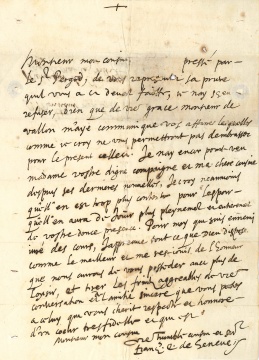 Monsieur mon cousin pressé par
le Sr de vous representer sa
qu'il vous a cy devant faitte, je n'ay
refuser, bien que de vre grace monsieur de
vallon m'aye communiqué vos affaires lesquelles
comme je croy ne vous permettront pas d'embrasser
pour le present celle cy. Je n'ay encor point veu
madame vostre digne compaigne et ma chere cousine
despuis ses dernieres nouvelles. Je croy neanmoins
qu'ell' en est trop plus contente pour l'espoir
qu'ell' en aura de jouir plus pleynement
de vostre douce presence. Pour moy qui suis
des cours, j'appreuve tout ce que Dieu dispose
comme le meilleur et me resjouis de l'honneur
que nous aurons de vous posseder avec plus de
loysir, et tirer les fruitz aggreables de vre
conversation et l'amitié sincere que vous portez
a celuy qui vous cherit respecte et honnore
d'un cœur tres fidelle et qui est
Monsieur mon cousin
Vre humble cousin et serr
Franç. E. de Geneve